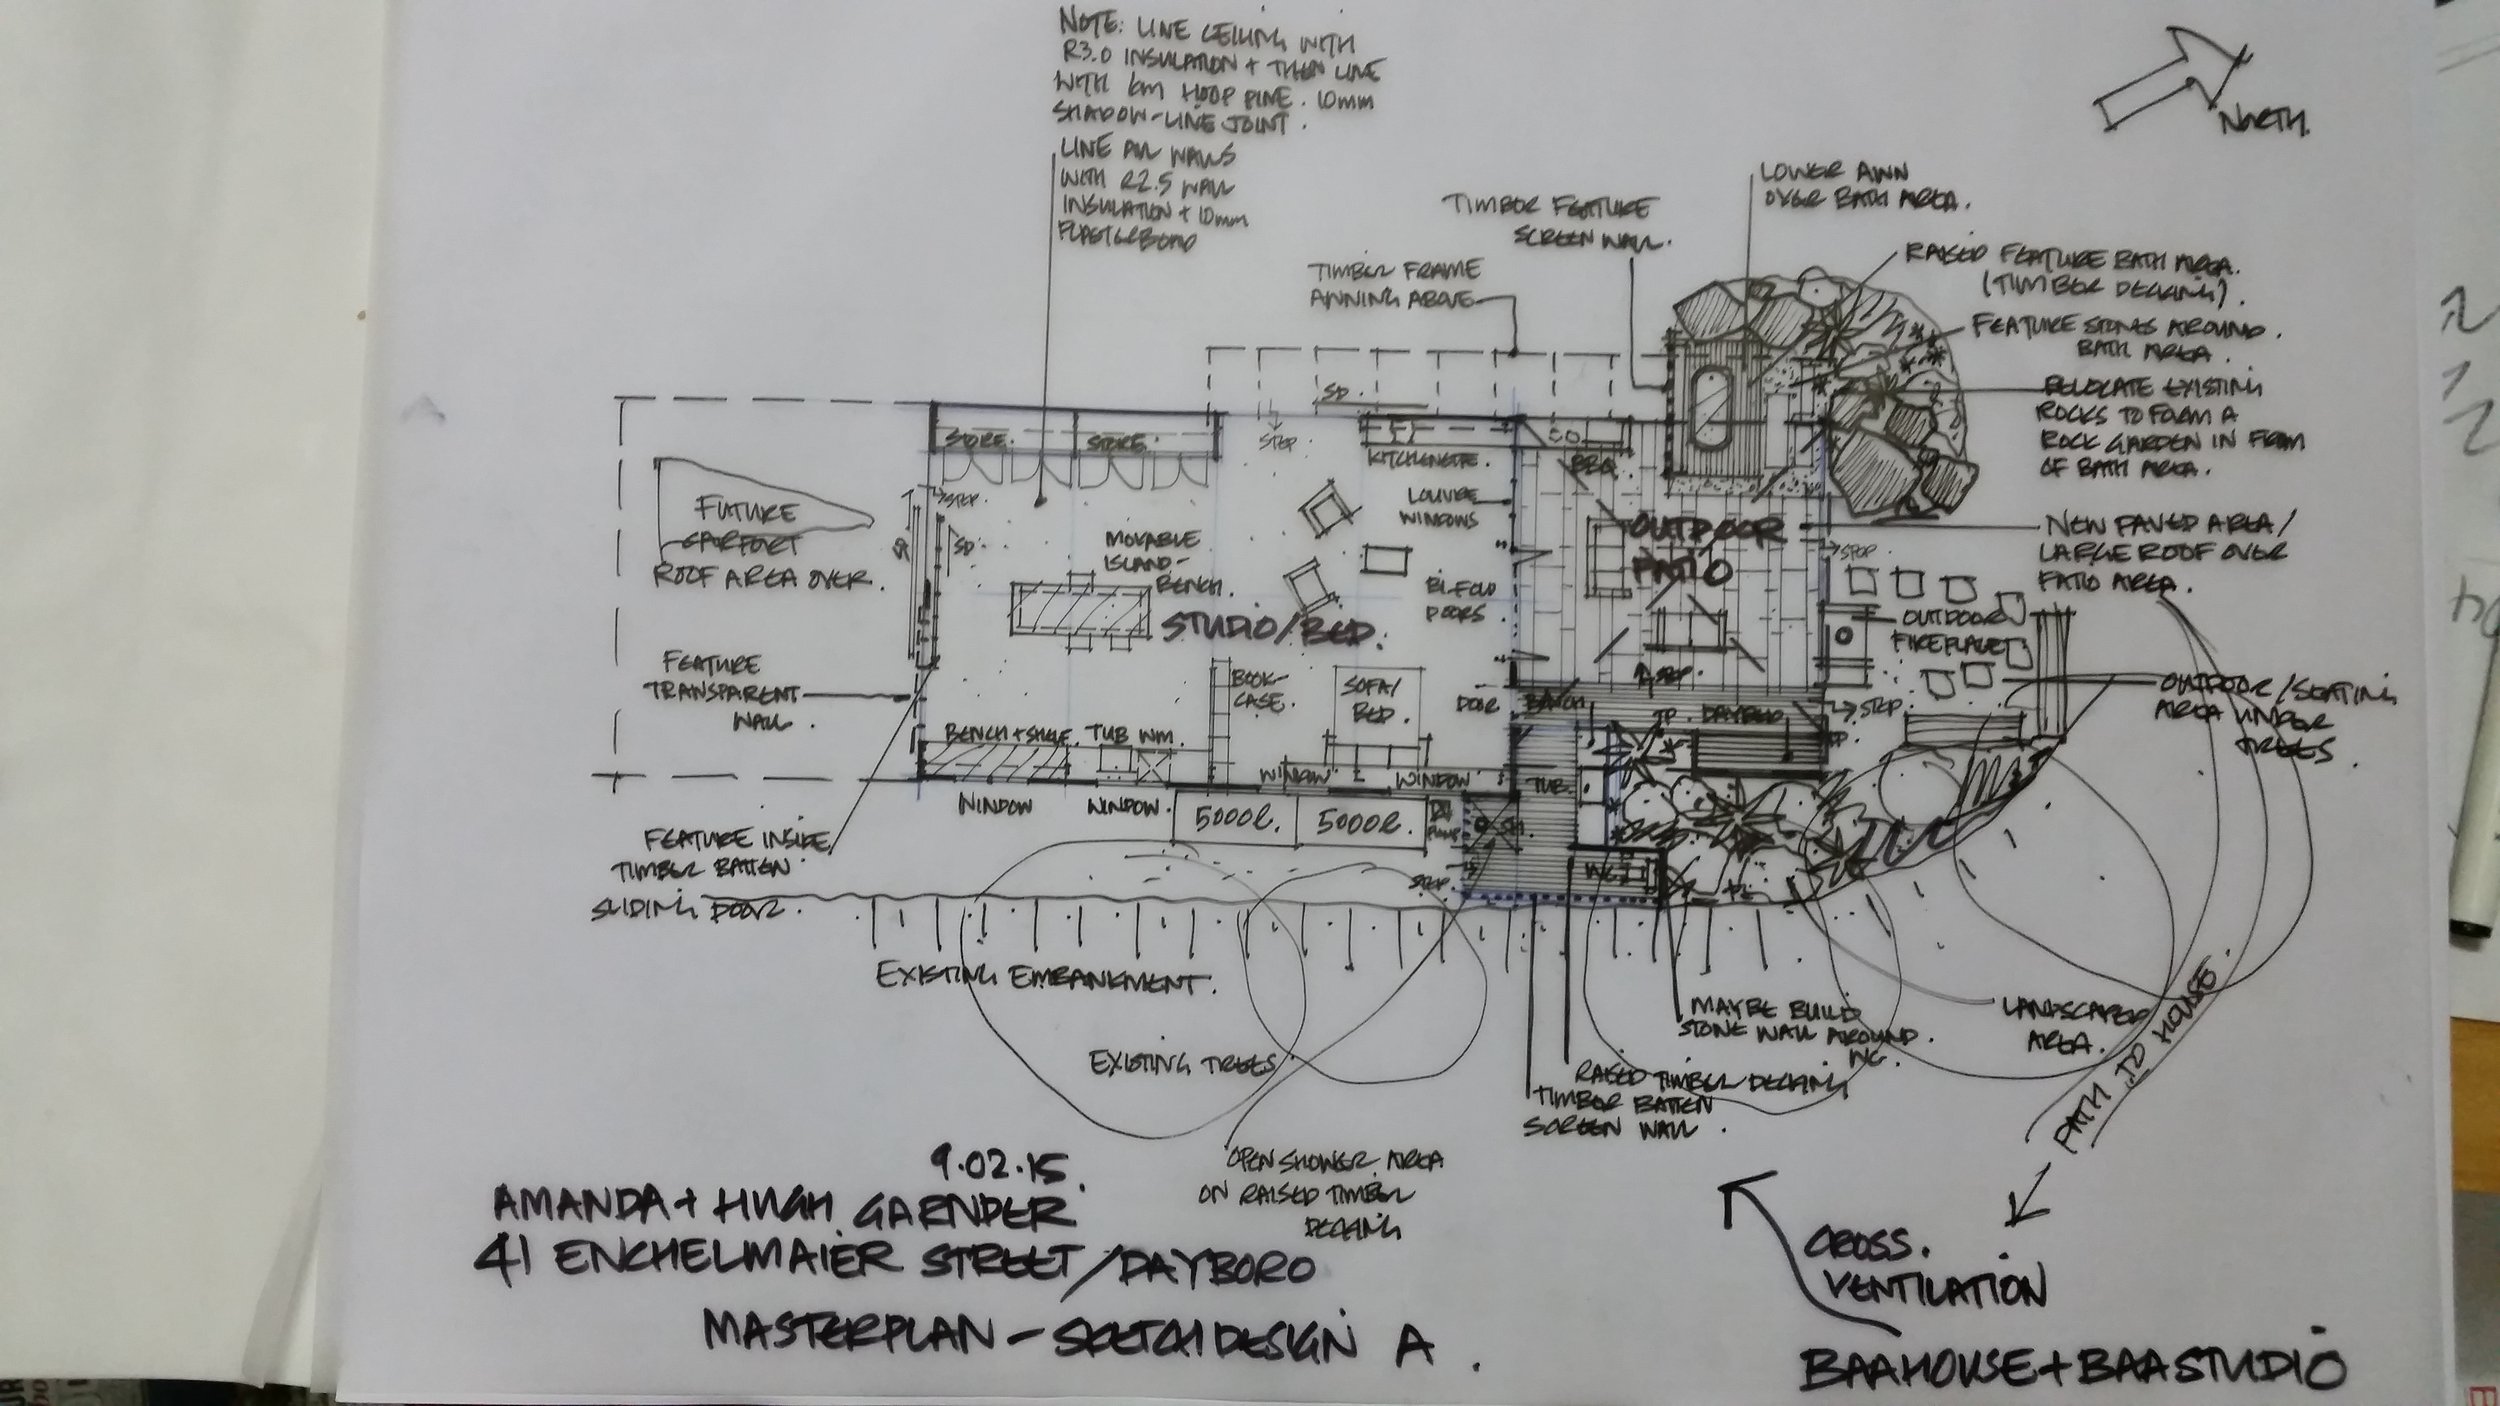 NOTE: LINE CEILING WITH
R3.0 INSULATION + THEN LINE
WITH 6mm HOOP PINE. 10mm
SHADOW-LINE JOINT.
LINE ALL WALLS
WITH R2.5 WALL
INSULATION + 10mm
PLASTERBOARD
NORTH.
LOWER AWN
OVER BATH AREA.
TIMBER FEATURE
SCREEN WALL.
TIMBER FRAME
AWNING ABOVE
RAISED FEATURE BATH AREA.
(TIMBER DECKING).
FEATURE STONES AROUND
BATH AREA.
RELOCATE EXISTING
ROCKS TO FORM A
ROCK GARDEN IN FRONT
OF BATH AREA.
NEW PAVED AREA/
LARGE ROOF OVER
PATIO AREA.
SD.
STORE.
STORE.
STEP
KITCHENETTE.
BBQ
STEP.
SD.
SD
FUTURE
CARPORT
ROOF AREA OVER.
MOVABLE
ISLAND-
BENCH.
LOUVRE
WINDOWS
BI-FOLD
DOORS
OUTDOOR
PATIO
STEP.
STUDIO/BED.
OUTDOOR
FIREPLACE
STEP.
FEATURE
TRANSPARENT
WALL.
BOOK-
CASE.
SOFA/
BED.
DOOR
BENCH
DAYBED
STEP.
OUTDOOR/SEATING
AREA UNDER
TREES.
BENCH + SHELF.
TUB
WM.
WINDOW
WINDOW
WINDOW
WINDOW.
TUB.
5000L.
5000L.
PUMP
SH.
WC.
STEP.
FEATURE INSIDE
TIMBER BATTEN
SLIDING DOOR.
EXISTING EMBANKMENT.
EXISTING TREES.
MAYBE BUILD
STONE WALL AROUND
WC.
RAISED TIMBER DECKING
TIMBER BATTEN
SCREEN WALL.
LANDSCAPED
AREA.
PATH TO HOUSE.
OPEN SHOWER AREA
ON RAISED TIMBER
DECKING
9.02.15.
AMANDA + HUGH GARNDER
41 ENCHELMAIER STREET/DAYBORO
MASTERPLAN - SKETCH DESIGN A.
CROSS.
VENTILATION
BAAHOUSE + BAASTUDIO